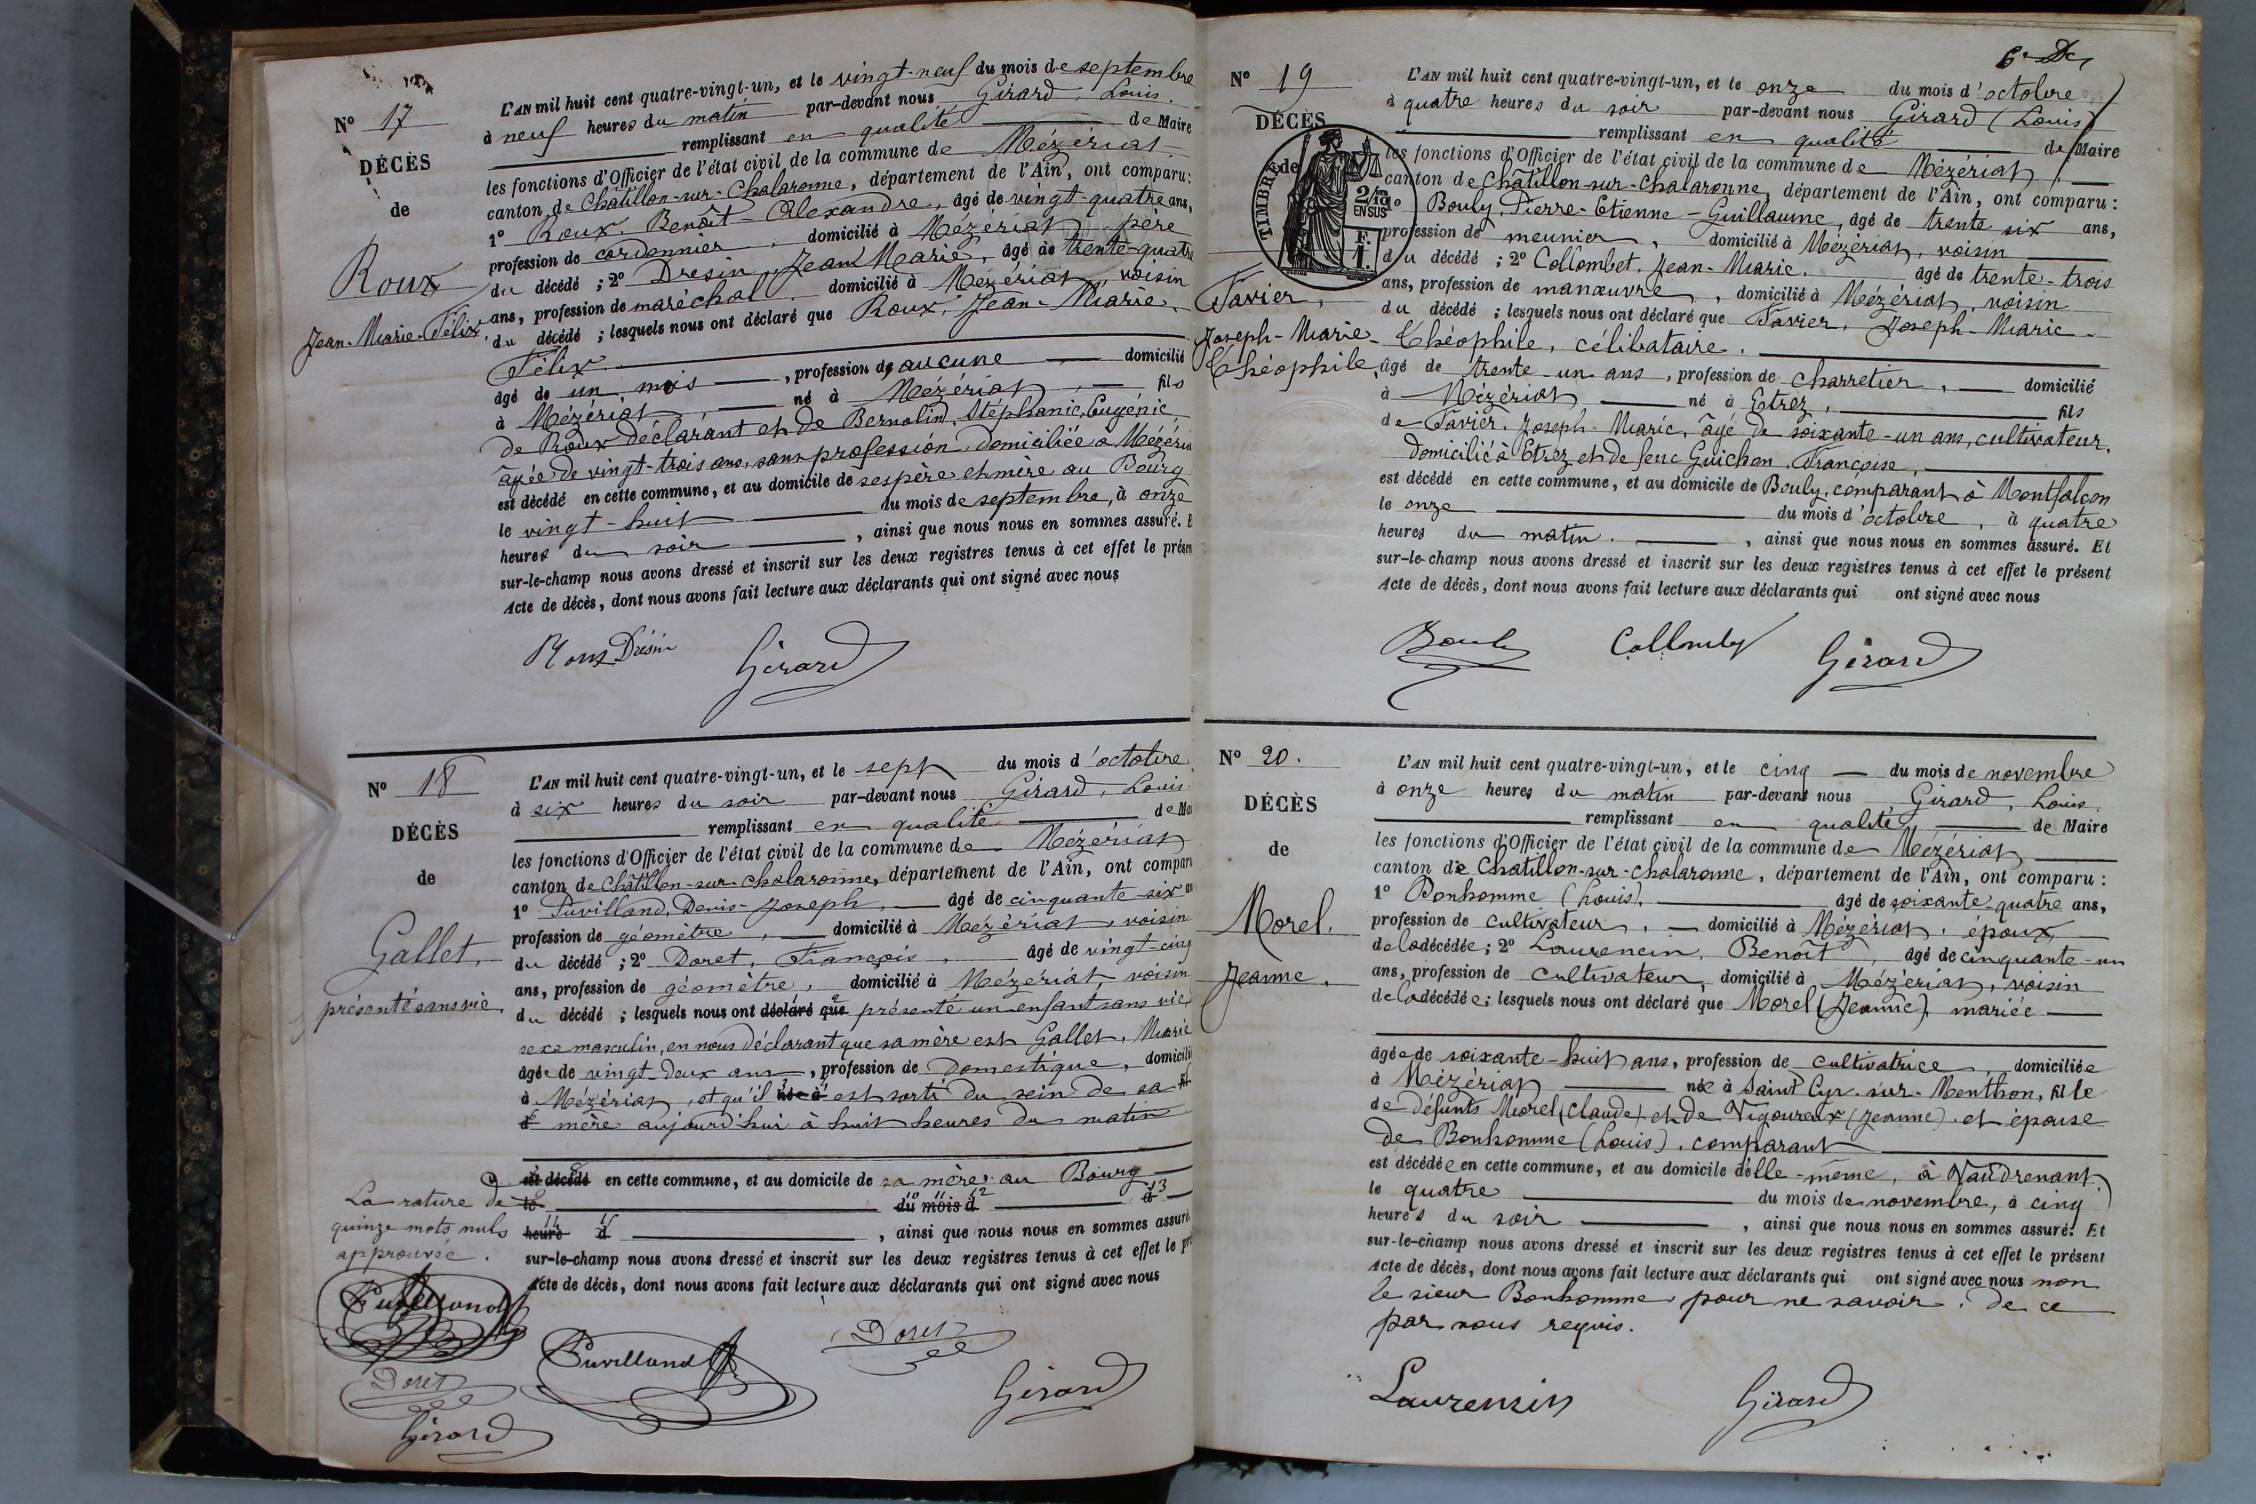 N° 17
DÉCÈS
de
Roux
Jean-Marie-Félix
L'AN mil huit cent quatre-vingt-un, et le vingt-neuf du mois de septembre
à neuf heures du matin par-devant nous Girard, Louis.
remplissant en qualité de Maire
les fonctions d'Officier de l'état civil de la commune de Mézériat
canton de Châtillon-sur-Chalaronne, département de l'Ain, ont comparu:
1° Roux. Benoît-Alexandre, âgé de vingt-quatre ans,
profession de cordonnier, domicilié à Mézériat, père
du décédé; 2° Dresin, Jean Marie, âgé de trente-quatre
ans, profession de maréchal domicilié à Mézériat, voisin
du décédé; lesquels nous ont déclaré que Roux, Jean-Marie,
Félix
âgé de un mois, profession de aucune domicilié
à Mézériat, né à Mézériat, fils
de Roux déclarant et de Bernolin, Stéphanie, Eugénie,
âgée de vingt-trois ans, sans profession, domiciliée à Mézériat
est décédé en cette commune, et au domicile de ses père et mère au Bourg
le vingt-huit du mois de septembre, à onze
heures du soir, ainsi que nous nous en sommes assuré. E
sur-le-champ nous avons dressé et inscrit sur les deux registres tenus à cet effet le présen
Acte de décès, dont nous avons fait lecture aux déclarants qui ont signé avec nous
Roux Drésin Girard
N° 18
DÉCÈS
de
Gallet,
présenté sans vie
L'AN mil huit cent quatre-vingt-un, et le sept du mois d'octobre
à six heures du soir par-devant nous Girard, Louis.
remplissant en qualité de Mai
les fonctions d'Officier de l'état civil de la commune de Mézériat
canton de Châtillon-sur-Chalaronne, département de l'Ain, ont compar
1° Puvilland, Denis-Joseph, âgé de cinquante-six an
profession de géomètre, domicilié à Mézériat, voisin
du décédé; 2° Doret, François, âgé de vingt-cinq
ans, profession de géomètre, domicilié à Mézériat, voisin
du décédé; lesquels nous ont déclaré que présenté un enfant sans vie,
sexe masculin, en nous déclarant que sa mère est Gallet, Marie
âgée de vingt-deux ans, profession de domestique, domicili
à Mézériat, et qu'il né à est sorti du sein de sa fil
d mère aujourd'hui à huit heures du matin
est décédé en cette commune, et au domicile de sa mère au Bourg
le du mois d à
heure d, ainsi que nous nous en sommes assuré.
sur-le-champ nous avons dressé et inscrit sur les deux registres tenus à cet effet le pré
Acte de décès, dont nous avons fait lecture aux déclarants qui ont signé avec nous
La rature de
quinze mots nuls
approuvée.
Puvilland
Doret
Girard
Puvilland Doret Girard
6e Dcs
N° 19
DÉCÈS
de
TIMBRE
2/10
EN SUS
F.
1.
Favier,
Joseph-Marie-
Théophile
L'AN mil huit cent quatre-vingt-un, et le onze du mois d'octobre
à quatre heures du soir par-devant nous Girard (Louis)
remplissant en qualité de Maire
les fonctions d'Officier de l'état civil de la commune de Mézériat,
canton de Châtillon-sur-Chalaronne, département de l'Ain, ont comparu:
1° Bouly, Pierre-Etienne-Guillaume, âgé de trente six ans,
profession de meunier, domicilié à Mézériat, voisin
du décédé; 2° Collombet, Jean-Marie. âgé de trente-trois
ans, profession de manœuvre, domicilié à Mézériat, voisin
du décédé; lesquels nous ont déclaré que Favier, Joseph-Marie-
Théophile, célibataire.
âgé de trente-un ans, profession de charretier, domicilié
à Mézériat né à Etrez, fils
de Favier, Joseph-Marie, âgé de soixante-un ans, cultivateur,
domicilié à Etrez et de feue Guichon, Françoise,
est décédé en cette commune, et au domicile de Bouly, comparant à Montfalcon
le onze du mois d'octobre, à quatre
heures du matin., ainsi que nous nous en sommes assuré. Et
sur-le-champ nous avons dressé et inscrit sur les deux registres tenus à cet effet le présent
Acte de décès, dont nous avons fait lecture aux déclarants qui ont signé avec nous
Bouly Collombet Girard
N° 20.
DÉCÈS
de
Morel.
Jeanne.
L'AN mil huit cent quatre-vingt-un, et le cinq du mois de novembre
à onze heures du matin par-devant nous Girard, Louis.
remplissant en qualité de Maire
les fonctions d'Officier de l'état civil de la commune de Mézériat
canton de Châtillon-sur-Chalaronne, département de l'Ain, ont comparu:
1° Bonhomme (Louis), âgé de soixante-quatre ans,
profession de cultivateur, domicilié à Mézériat, époux
de la décédée; 2° Laurencin, Benoît, âgé de cinquante-un
ans, profession de cultivateur, domicilié à Mézériat, voisin
de la décédée; lesquels nous ont déclaré que Morel (Jeanne), mariée
âgée de soixante-huit ans, profession de cultivatrice, domiciliée
à Mézériat née à Saint Cyr-sur-Menthon, fille
de défunts Morel (Claude) et de Vigoureux (Jeanne). et épouse
de Bonhomme (Louis), comparant
est décédée en cette commune, et au domicile d'elle-même, à Vaudrenant.
le quatre du mois de novembre, à cinq
heures du soir, ainsi que nous nous en sommes assuré. Et
sur-le-champ nous avons dressé et inscrit sur les deux registres tenus à cet effet le présent
Acte de décès, dont nous avons fait lecture aux déclarants qui ont signé avec nous non
le sieur Bonhomme, pour ne savoir, de ce
par nous requis.
Laurensin Girard